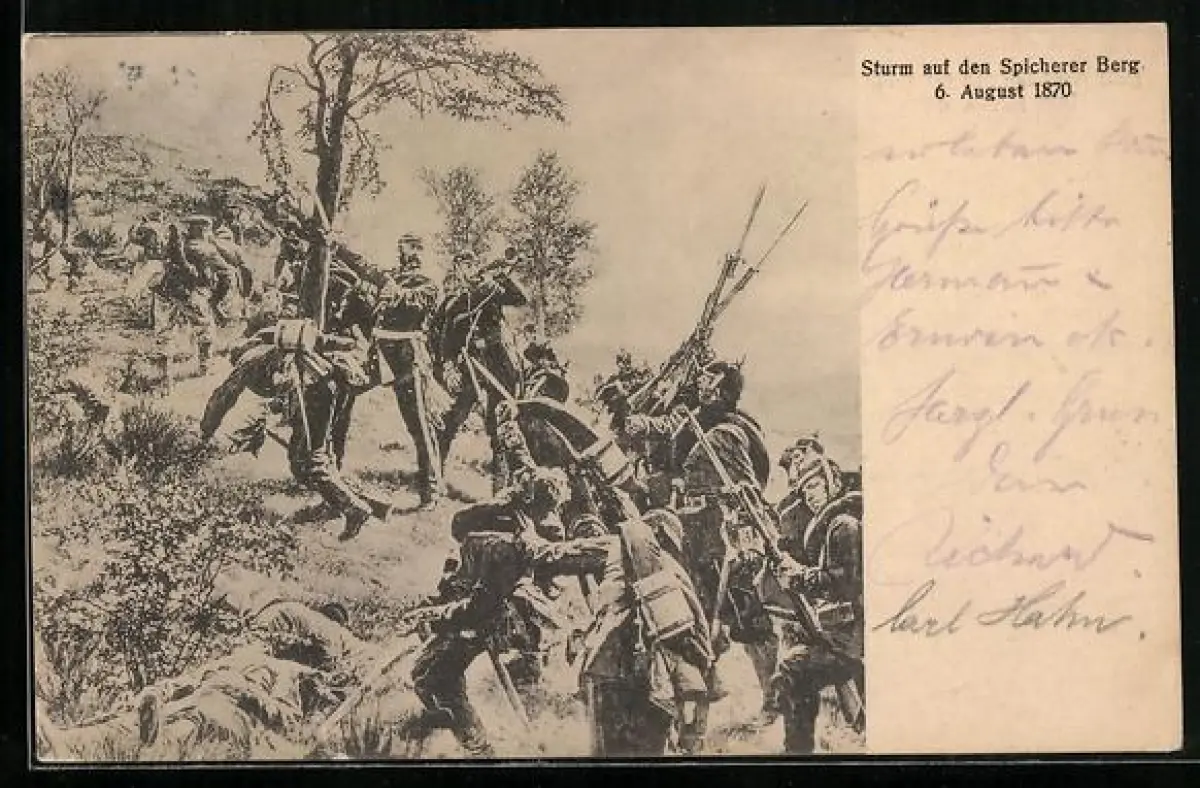 Sturm auf den Spicherer Berg.
6. August 1870
Grüße bitte
Hermann &
Erwin etc.
Herzl. Gruss
Dein
Richard
Carl Hahn.